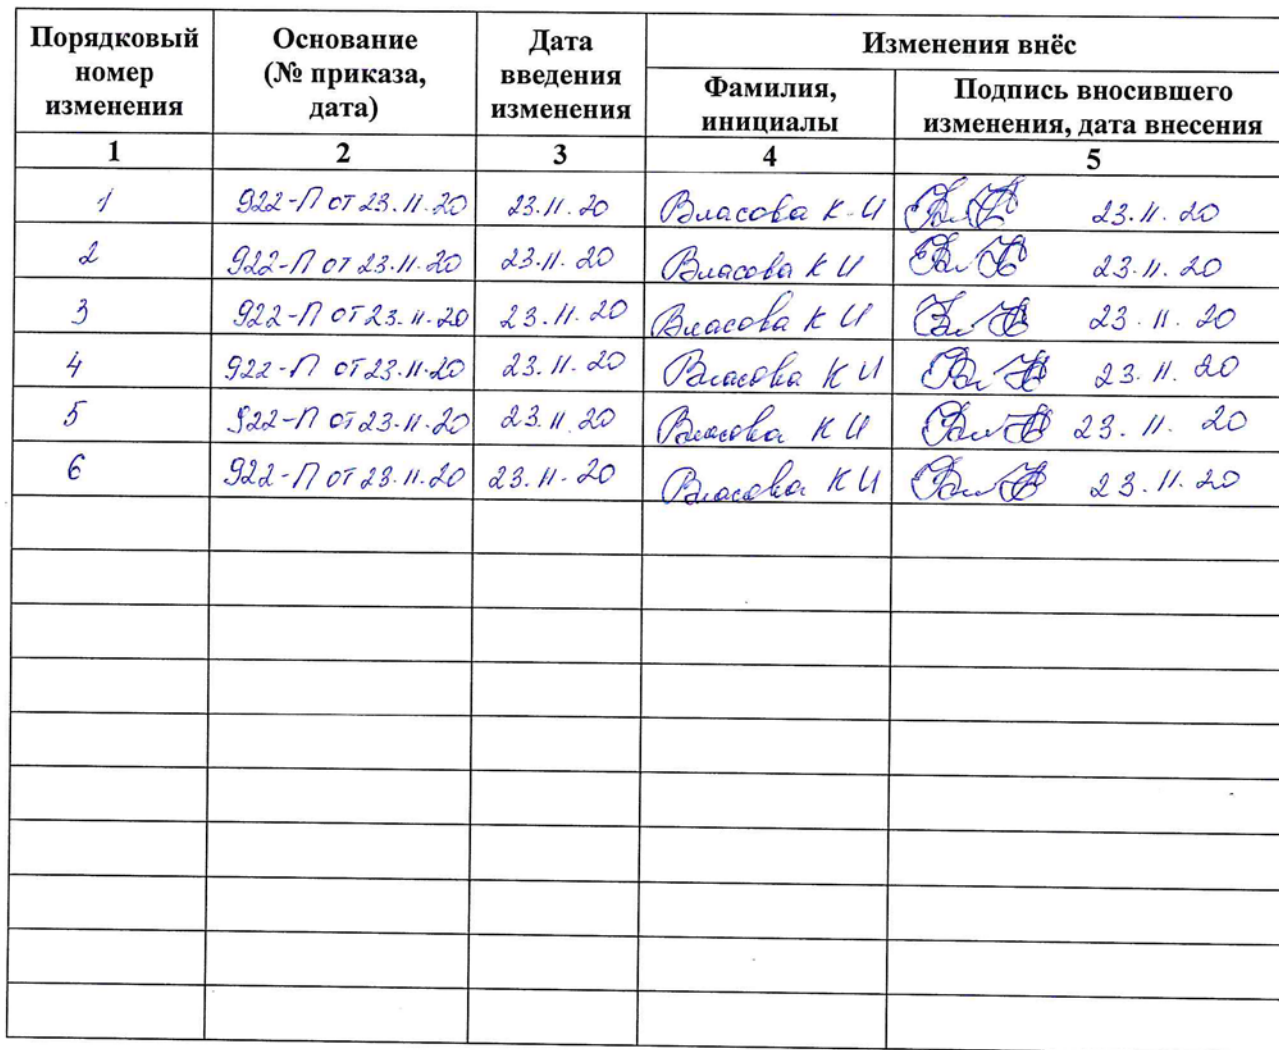 Порядковый номер изменения | Основание (№ приказа, дата) | Дата введения изменения | Изменения внёс
Фамилия, инициалы | Подпись вносившего изменения, дата внесения
1 | 2 | 3 | 4 | 5
1 | 922-П от 23.11.20 | 23.11.20 | Власова К-И | 23.11.20
2 | 922-П от 23.11.20 | 23.11.20 | Власова К И | 23.11.20
3 | 922-П от 23.11.20 | 23.11.20 | Власова К И | 23.11.20
4 | 922-П от 23.11.20 | 23.11.20 | Власова К И | 23.11.20
5 | 922-П от 23.11.20 | 23.11.20 | Власова К И | 23.11.20
6 | 922-П от 23.11.20 | 23.11.20 | Власова К И | 23.11.20